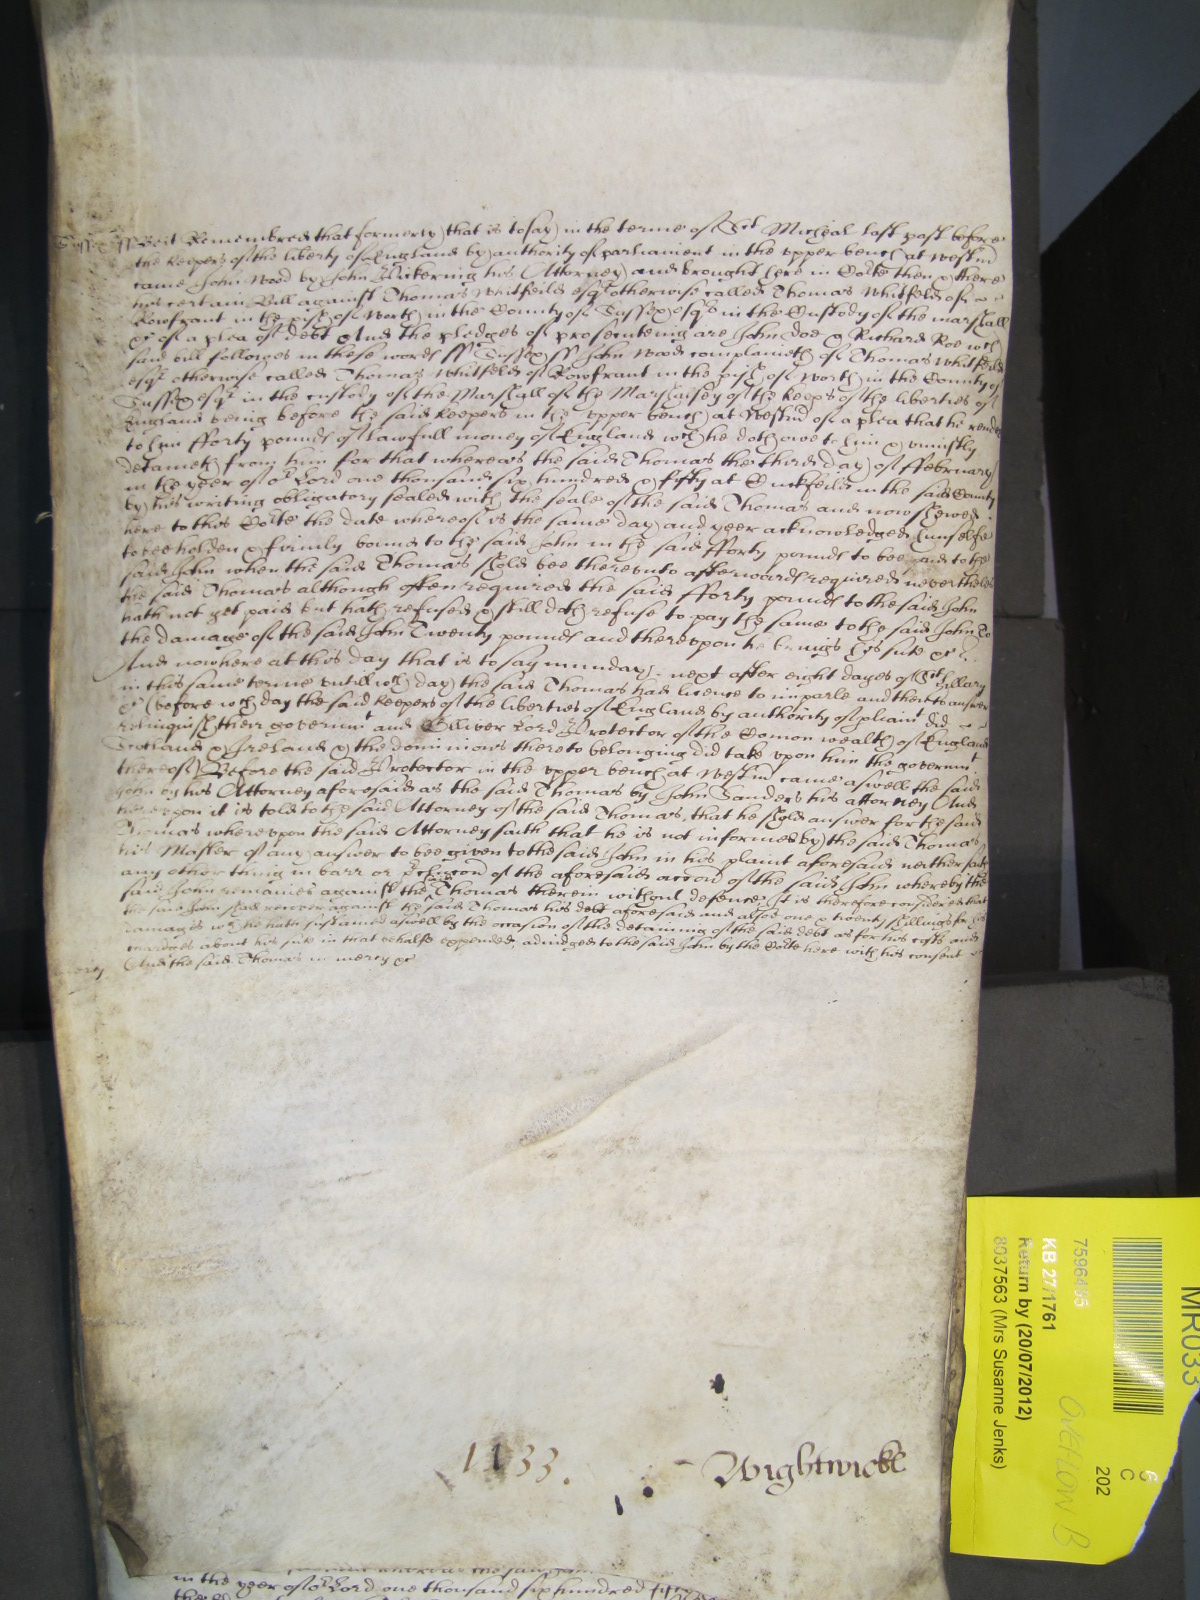 Sussex ss Beit Remembred that formerly that is to say in the terme of St Micheal last past before
the keepers of the liberty of England by authority of parliament in the upper bench at Westmr
came John Wood by John Pickering his Attorney and brought here in Co'te then & there
his certain Bill against Thomas Whitfeild esqr otherwise called Thomas Whitfeld of
Rowfrant in the p'ish of Worth in the County of Sussex esqr in the Custody of the marshall
&c of a plea of debt And the pledges of prosecuteing are John Doe & Richard Roe wch
said bill followes in these words ss Sussex ss John Wood complaineth of Thomas Whitfeild
esqr otherwise called Thomas Whitfeld of Rowfrant in the p'ish of Worth in the County of
Sussex esqr in the custody of the Marshall of the Marshalsey of the keeps of the liberties of
England being before the said keepers in the upper bench at Westmr of a plea that he render
to him fforty pounds of lawfull money of England wch he doth owe to him & uniustly
detaineth from him for that whereas the said Thomas the third day of ffebruary
in the yeer of or Lord one thousand six hundred & fifty at Cuckfeild in the said County
by his writing obligatory sealed with the seale of the said Thomas and now shewed
here to this Co'te the date whereof is the same day and yeer acknowledged himselfe
to bee holden & firmly bound to the said John in the said fforty pounds to bee paid to the
said John when the said Thomas shold bee thereunto afterwards required neverthelesse
the said Thomas although often required the said fforty pounds to the said John
hath not yet paid but hath refused & still doth refuse to pay the same to the said John To
the damage of the said John Twenty pounds and thereupon he brings his suite &c
And now here at this day that is to say munday next after eight dayes of St Hillary
in this same terme untill wch day the said Thomas had licence to imparle and then to answer
&c (before wch day the said keepers of the liberties of England by authority of pliamt did
relinquish their governmt and Olliver Lord Protector of the Comon wealth of England
Scotland & Ireland & the dominions thereto belonging did take upon him the governmt
thereof) Before the said Protector in the upper bench at Westmr came aswell the said
John by his Attorney aforesaid as the said Thomas by John Sanders his attorney And
hereupon it is told to the said Attorney of the said Thomas, that he shold answer for the said
Thomas whereupon the said Attorney saith that he is not informed by the said Thomas
his Master of any answer to bee given to the said John in his plaint aforesaid neither saith
any other thing in barr or p'clusion of the aforesaid accon of the said John whereby the
said John remaines against the said Thomas therein without defence It is therefore considered that
the said John shall recover against the said Thomas his debt aforesaid and alsoe one & twenty shillings for his
damages wch he hath sustained aswell by the occasion of the detaining of the said debt as for his costs and
charges about his suite in that behalfe expended adiudged to the said John by the Co'te here with his consent
mercy And the said Thomas in mercy &c
1133.
Wightwicke
in the yeer of or Lord one thousand six hundred
MR033
6
C
202
7596455
KB 27/1761
Return by (20/07/2012)
8037563 (Mrs Susanne Jenks)
OVERFLOW B